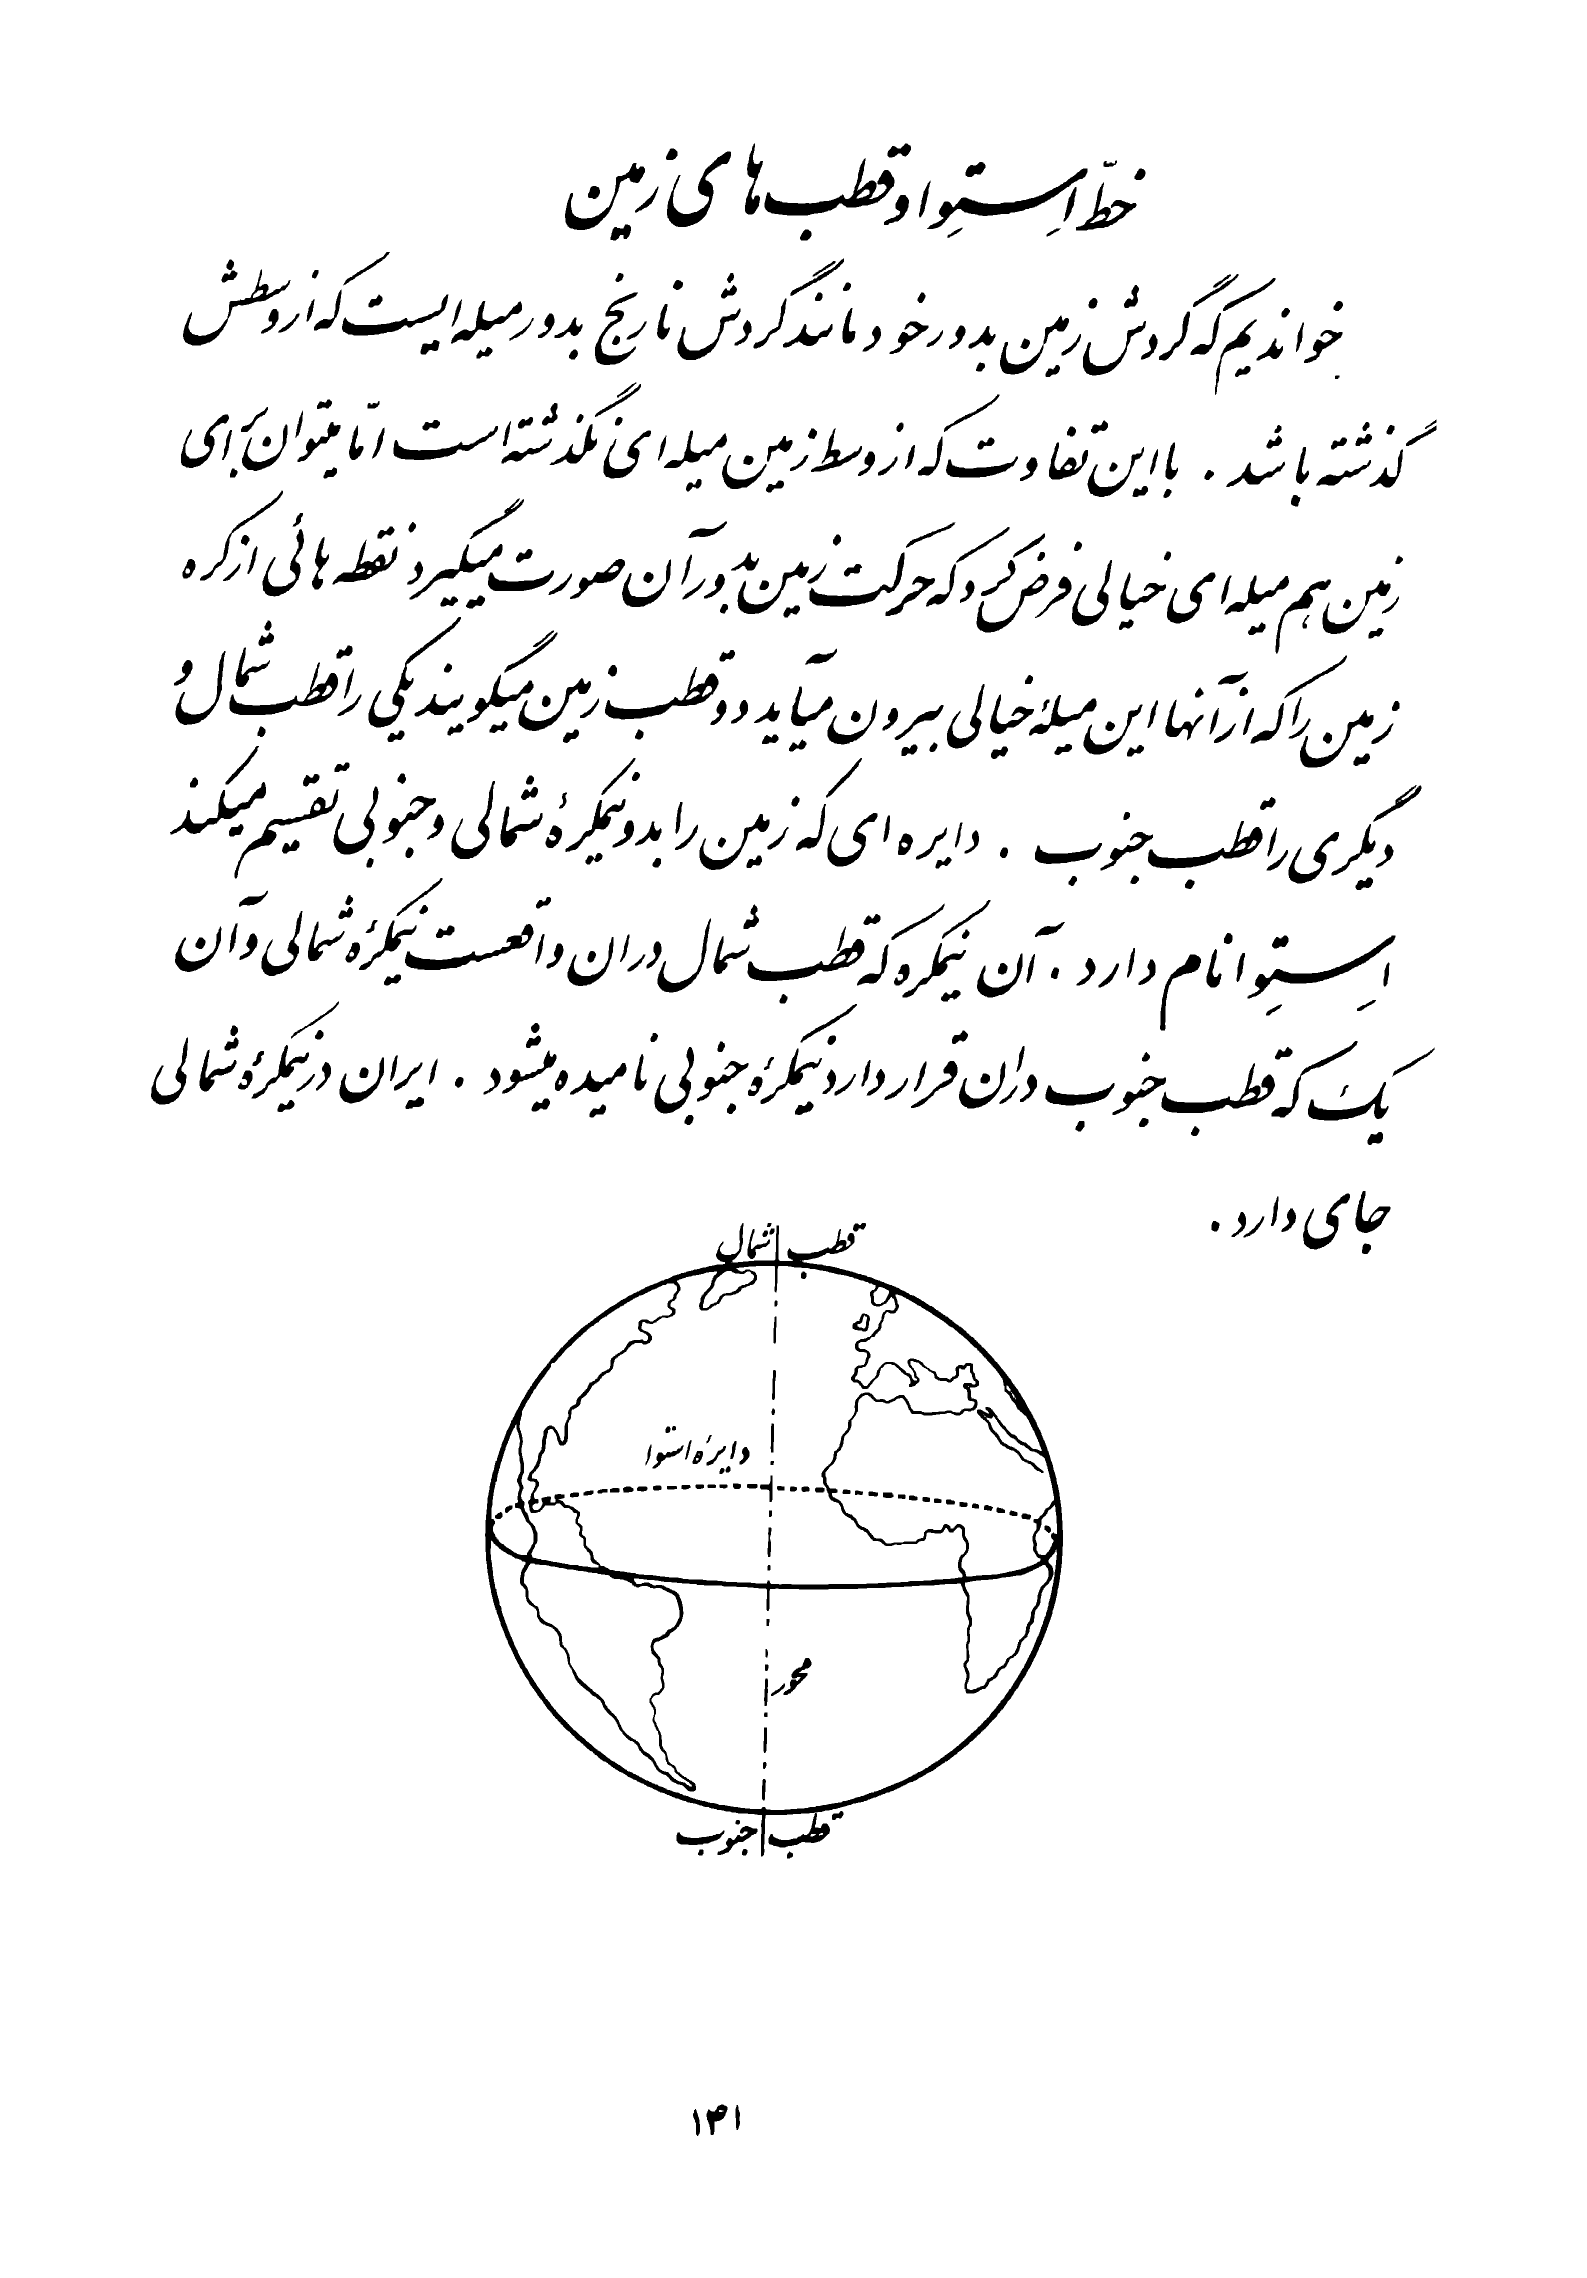 خطّ اِستِوا و قطب های زمین
خواندیم که گردش زمین بدور خود مانند گردش نارنج بدور میله ایست که از وسطش
گذشته باشد . با این تفاوت که از وسط زمین میله ای نگذشته است امّا میتوان برای
زمین هم میله ای خیالی فرض کرد که حرکت زمین بدور آن صورت میگیرد نقطه هائی از کره
زمین را که از آنها این میلهٔ خیالی بیرون میآید دو قطب زمین میگویند یکی را قطب شمال و
دیگری را قطب جنوب . دایره ای که زمین را بدو نیمکرهٔ شمالی و جنوبی تقسیم میکند
اِستِوا نام دارد . آن نیمکره که قطب شمال در ان واقعست نیمکرهٔ شمالی و آن
یک که قطب جنوب در ان قرار دارد نیمکرهٔ جنوبی نامیده میشود . ایران در نیمکرهٔ شمالی
جای دارد .
قطب شمال
دایرهٔ استوا
محور
قطب جنوب
۱۴۱